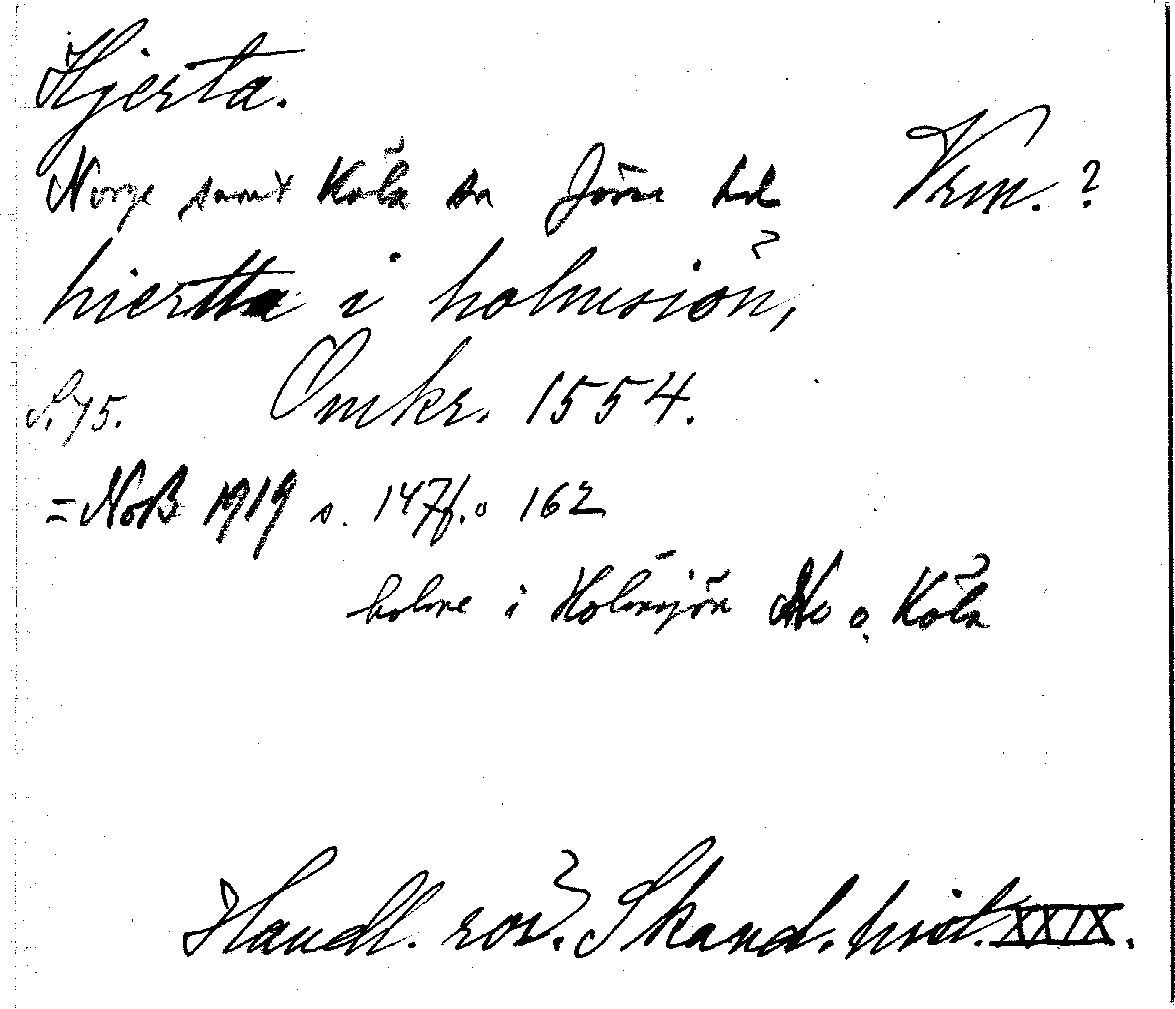 Hjerta.
Norge samt Köla sn Jösse hd Vrm.?
hiertta i holmsiön,
S. 75. Omkr. 1554.
= NoB 1919 s. 147f. o 162
holme i Holmsjön No o. Köla
Handl. rör. Skand. hist. XXIX.